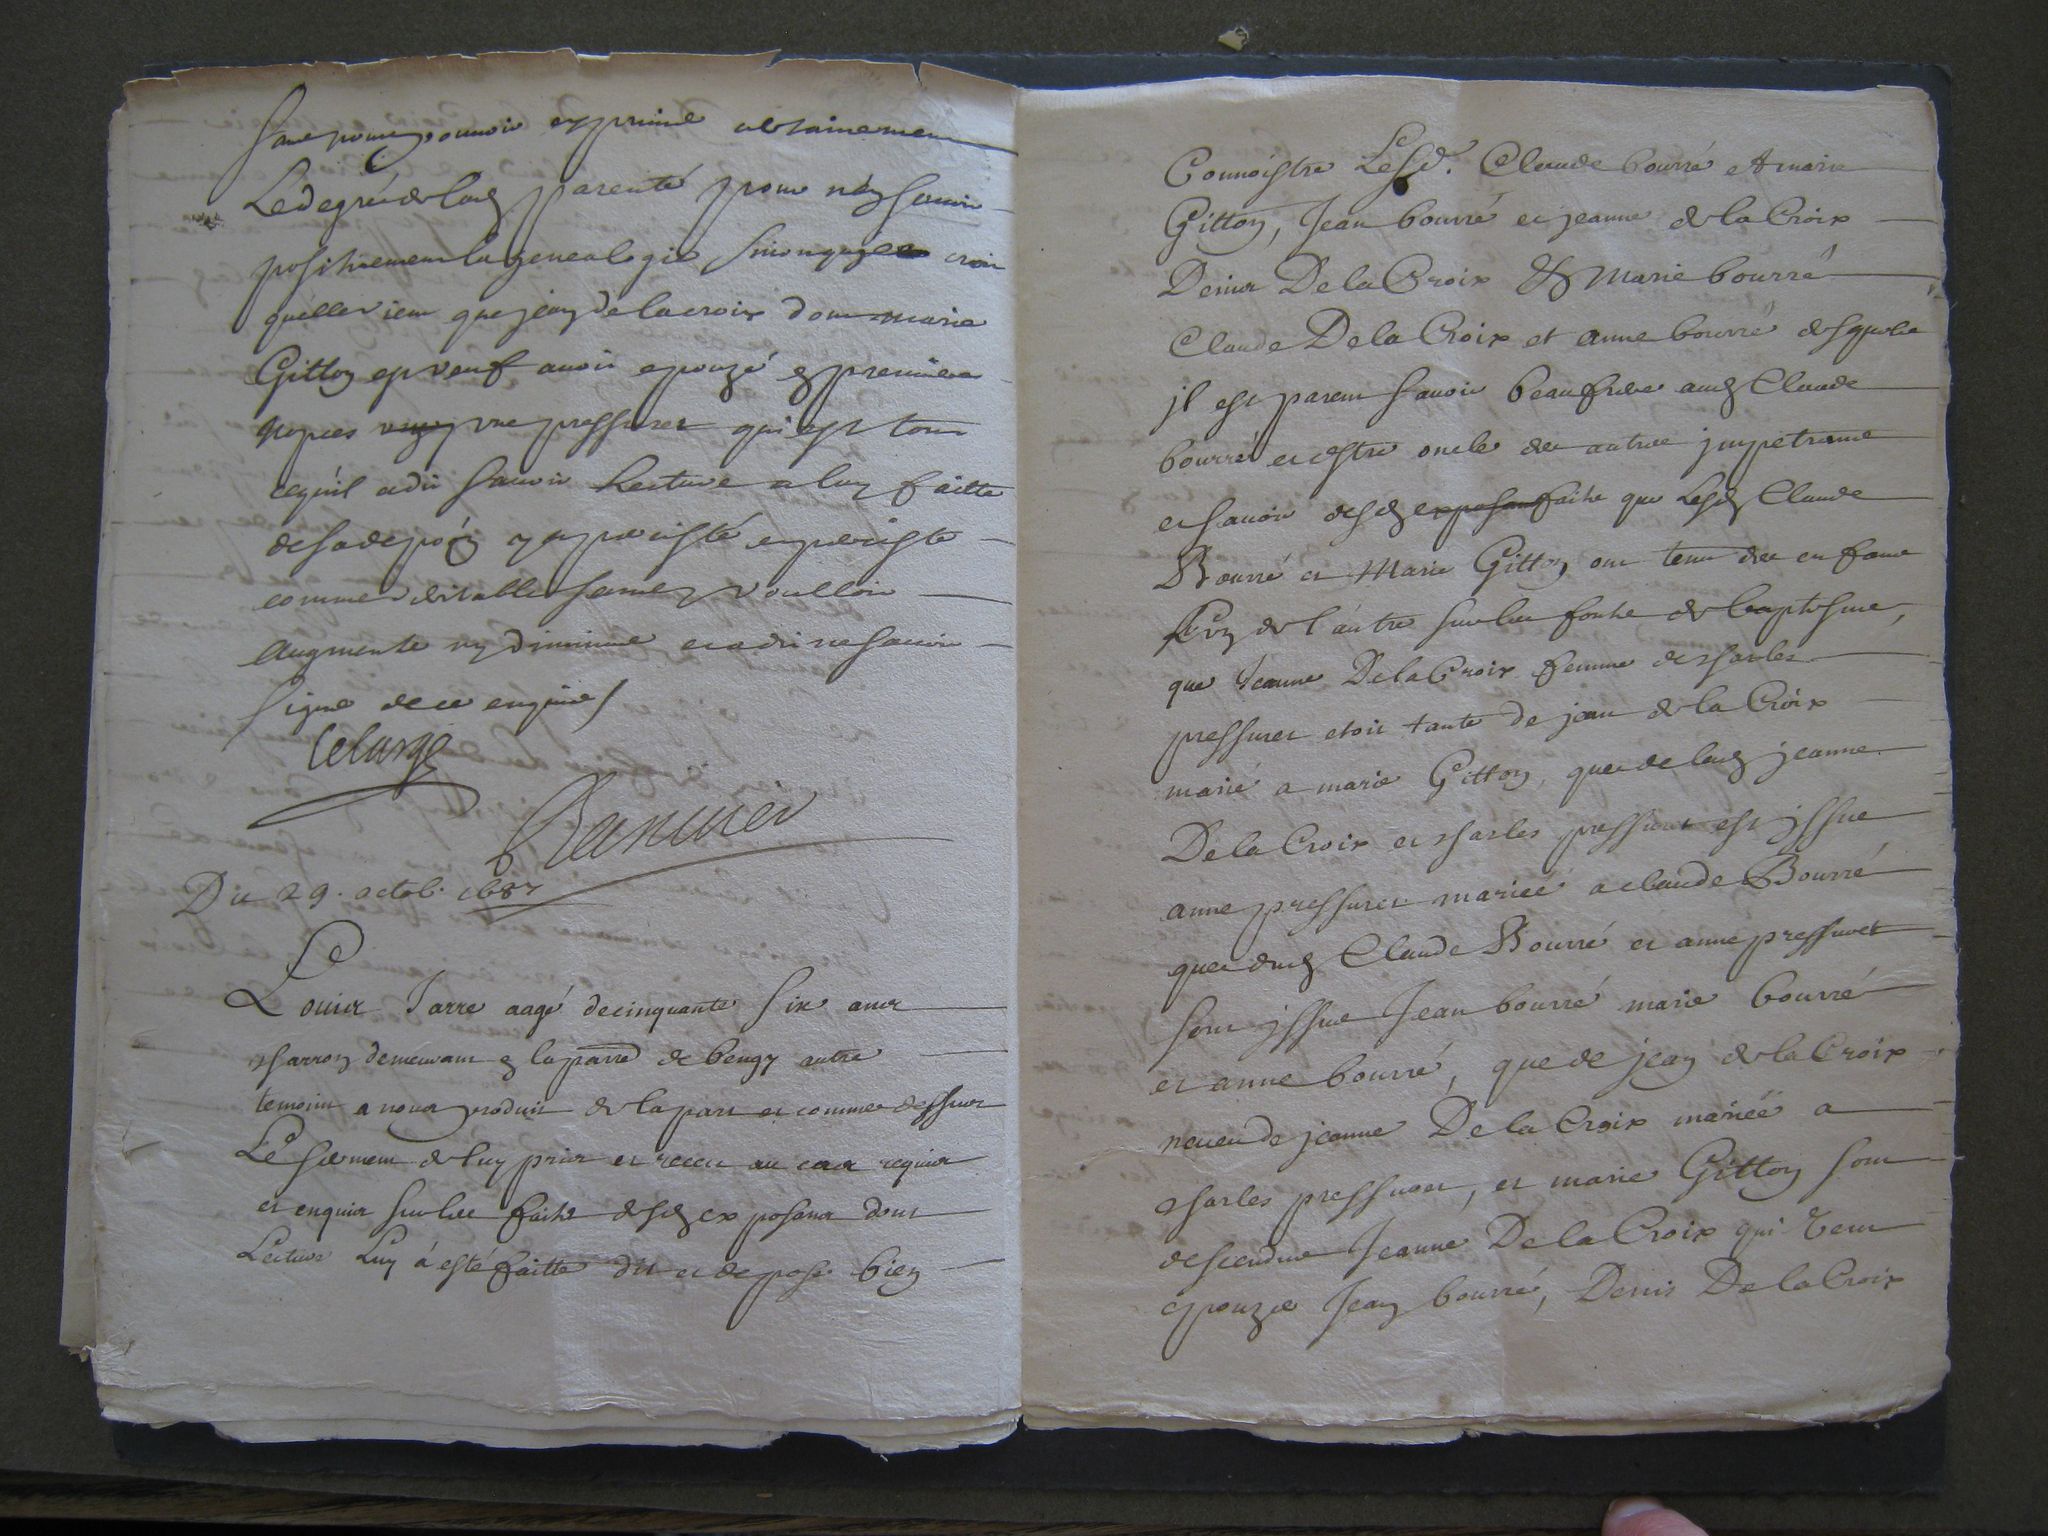 sans pouvoir exprimer certainement
Le degré de lad parenté pour n'en scavoir
positivement la genealogie sinon que croit
quelle vient que jean de la croix dont marie
Gitton est veuf avoit epouzé en premiere
nopces une pressuret qui est tout
ce qu'il a dit scavoir Lecture a luy faitte
de sa depoōn y a persisté et persiste
comme veritable sans y voulloir
augmenter ny diminuer et a dit ne scavoir
signer de ce enquis /
Lelarge
Du 29. octob. 1687
Louis Jarre aagé de cinquante six ans
charron demeurant en la parre de bengy autre
temoin a nous produit de la part et comme dessus
Le serment de luy pris et receu au cas requis
et enquis sur les faits desd exposans dont
Lecture Luy á esté faitte dit et depose bien
Connoistre Lesd. Claude bourré et marie
Gitton, Jean bourré et jeanne de la Croix
Denis De la Croix & Marie bourré
Claude De la Croix et anne bourré desquels
il est parent scavoir beaufrere aud Claude
bourré et estre oncle des autres impetrans
et scavoir desd faits que Lesd Claude
Bourré et Marie Gitton ont tenu des enfans
L'vn de l'autre sur les fonts de baptesme,
que Jeanne De la Croix femme de charles
pressuret etoit tante de jean de la Croix
marié a marie Gitton, que de lad jeanne
De la Croix et charles pressuret est issue
anne pressuret mariée a claude Bourré
que dud Claude Bourré et anne pressuret
sont issus Jean bourré marie bourré
et anne bourré, que de jean de la Croix
neveu de jeanne De la Croix mariée a
charles pressuret, et marie Gitton sont
descendus Jeanne De la Croix qui veut
epouzer Jean bourré, Denis De la Croix